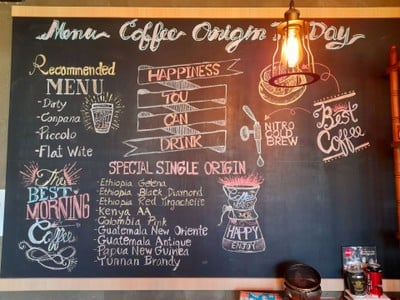 Menu Coffee Origin To Day
Recommended
MENU
- Dirty
- Conpana
- Piccolo
- Flat Wite
HAPPINESS
YOU
CAN
DRINK
NITRO
COLD
BREW
Best
Coffee
The
BEST
MORNING
Coffee
SPECIAL SINGLE ORIGIN
- Ethiopia Gelena
- Ethiopia Black Diamond
- Ethiopia Red Yirgacheffe
- Kenya AA
- Colombia Pink
- Guatemala New Oriente
- Guatemala Antique
- Papua New Guinea
- Yunnan Brandy
ME
HAPPY
ENJOY